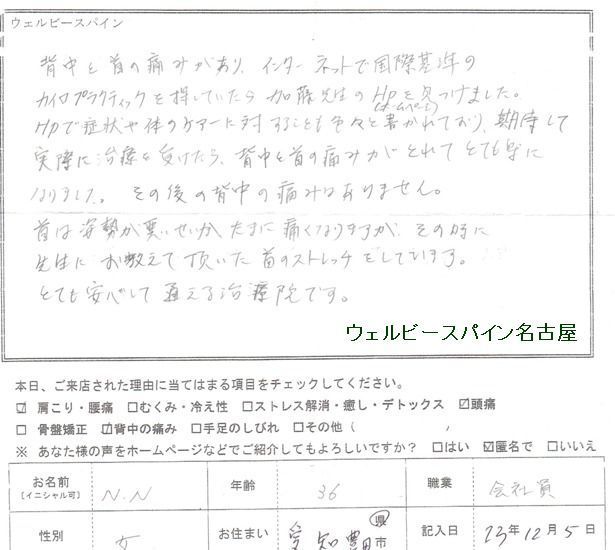 ウェルビースパイン
背中と首の痛みがあり、インターネットで国際基準の
カイロプラクティックを探していたら加藤先生のHP(ホームページ)を見つけました。
HPで症状や体のケアーに対することも色々と書かれており、期待して
実際に治療を受けたら、背中と首の痛みがとれてとても楽に
なりました。その後の背中の痛みはありません。
首は姿勢が悪いせいか、たまに痛くなりますが、その時に
先生にお教えて頂いた首のストレッチをしています。
とても安心して通える治療院です。
ウェルビースパイン名古屋
本日、ご来店された理由に当てはまる項目をチェックしてください。
☑ 肩こり・腰痛 □むくみ・冷え性 □ストレス解消・癒し・デトックス ☑頭痛
□ 骨盤矯正 ☑背中の痛み □手足のしびれ □その他（ ）
※ あなた様の声をホームページなどでご紹介してもよろしいですか？ □はい ☑匿名で □いいえ
お名前 [イニシャル可] N.N 年齢 36 職業 会社員
性別 女 お住まい 愛知 県 豊田 市 記入日 23年12月5日